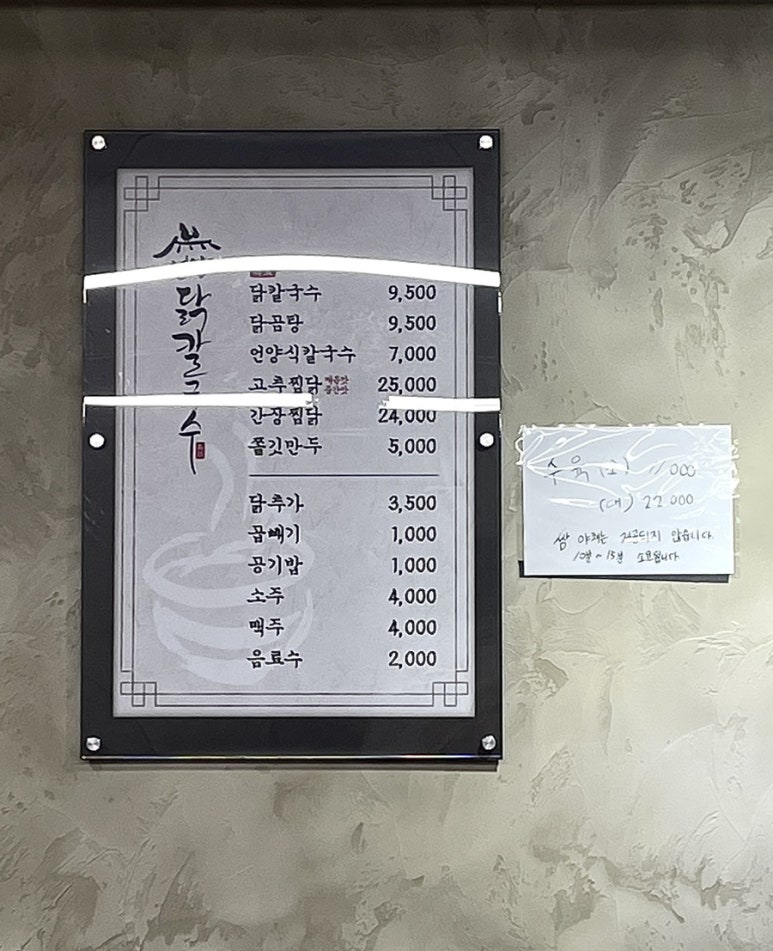 닭칼국수
닭칼국수 9,500
닭곰탕 9,500
언양식칼국수 7,000
고추찜닭 매운맛 중간맛 25,000
간장찜닭 24,000
쫄깃만두 5,000
닭추가 3,500
곱빼기 1,000
공기밥 1,000
소주 4,000
맥주 4,000
음료수 2,000
수육 (소) 11,000
(대) 22,000
쌈 야채는 제공되지 않습니다.
10분~15분 소요됩니다.